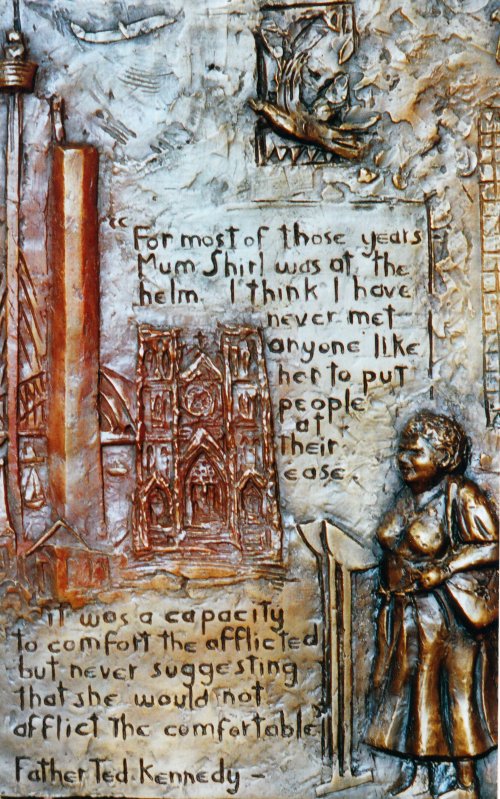 "For most of those years
Mum Shirl was at the
helm. I think I have
never met
anyone like
her to put
people
at
their
ease.
it was a capacity
to comfort the afflicted
but never suggesting
that she would not
afflict the comfortable"
Father Ted Kennedy -